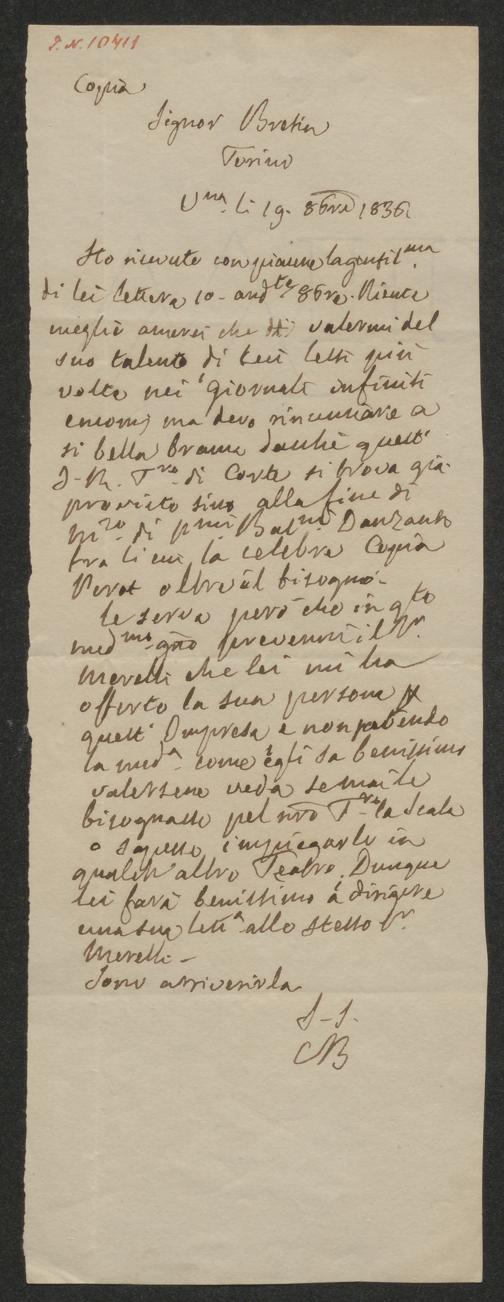 I. N. 10411
Copia
Signor Bretin
Torino
Vna. li 19. 8bre 1836
Ho ricevuto con piacere la gentilma.
di lei lettera 10 andte 8bre. Niente
meglio amerei che di valermi del
suo talento di cui lessi più
volte nei giornali infiniti
encomj ma devo rinunciare a
si bella brama dacchè quest'
I. R. Tro. di Corte si trova già
provisto sino alla fine di
mrzo. di pmi Balni Danzanti
tra li cui la celebre Copia
Perot oltre il bisogno.
Le serva però che in qto
medmo. gno prevenni il Sr.
Merelli che lei mi ha
offerto la sua persona p
quest' Impresa e non potendo
la meda. come egli sa benissimo
valersene veda se mai le
bisognasse pel nro Tro. la Scala
o sapesse impiegarlo in
qualch' altro Teatro. Dunque
lei farà benissimo a dirigere
una sua letta. allo stesso Sr.
Merelli -
Sono a riverirla
S-S-
CB